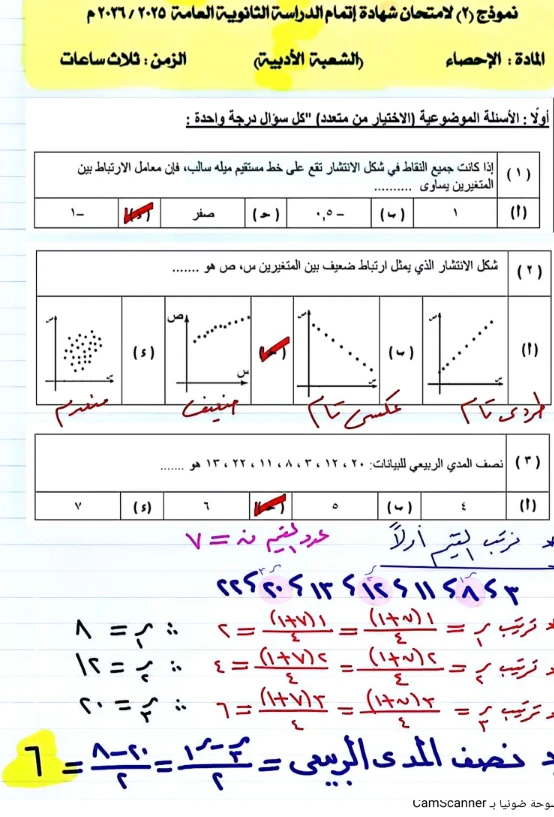 نموذج (٢) لامتحان شهادة إتمام الدراسة الثانوية العامة ٢٠٢٥ / ٢٠٢٦ م
المادة : الإحصاء (الشعبة الأدبية) الزمن : ثلاث ساعات
أولًا : الأسئلة الموضوعية (الاختيار من متعدد) "كل سؤال درجة واحدة :
(١) إذا كانت جميع النقاط في شكل الانتشار تقع على خط مستقيم ميله سالب، فإن معامل الارتباط بين
المتغيرين يساوى ..........
(أ) ١ (ب) −٠,٥ (جـ) صفر (د) −١
(٢) شكل الانتشار الذي يمثل ارتباط ضعيف بين المتغيرين س، ص هو .......
(أ) ص س (ب) ص س (جـ) ص س (د) ص س
طردى تام عكسى تام ضعيف منعدم
(٣) نصف المدي الربيعي للبيانات: ٢٠ ، ١٢ ، ٣ ، ٨ ، ١١ ، ٢٢ ، ١٣ هو .......
(أ) ٤ (ب) ٥ (جـ) ٦ (د) ٧
* نرتب القيم أولاً عدد القيم ن = ٧
٣ ، ٨ ، ١١ ، ١٢ ، ١٣ ، ٢٠ ، ٢٢
* ترتيب ر١ = ١(ن+١)/٤ = ١(٧+١)/٤ = ٢ ∴ ر١ = ٨
* ترتيب ر٢ = ٢(ن+١)/٤ = ٢(٧+١)/٤ = ٤ ∴ ر٢ = ١٢
* ترتيب ر٣ = ٣(ن+١)/٤ = ٣(٧+١)/٤ = ٦ ∴ ر٣ = ٢٠
* نصف المدى الربيعى = ر٣ − ر١/٢ = ٢٠ − ٨/٢ = ٦
وحة ضوئيا بـ CamScanner